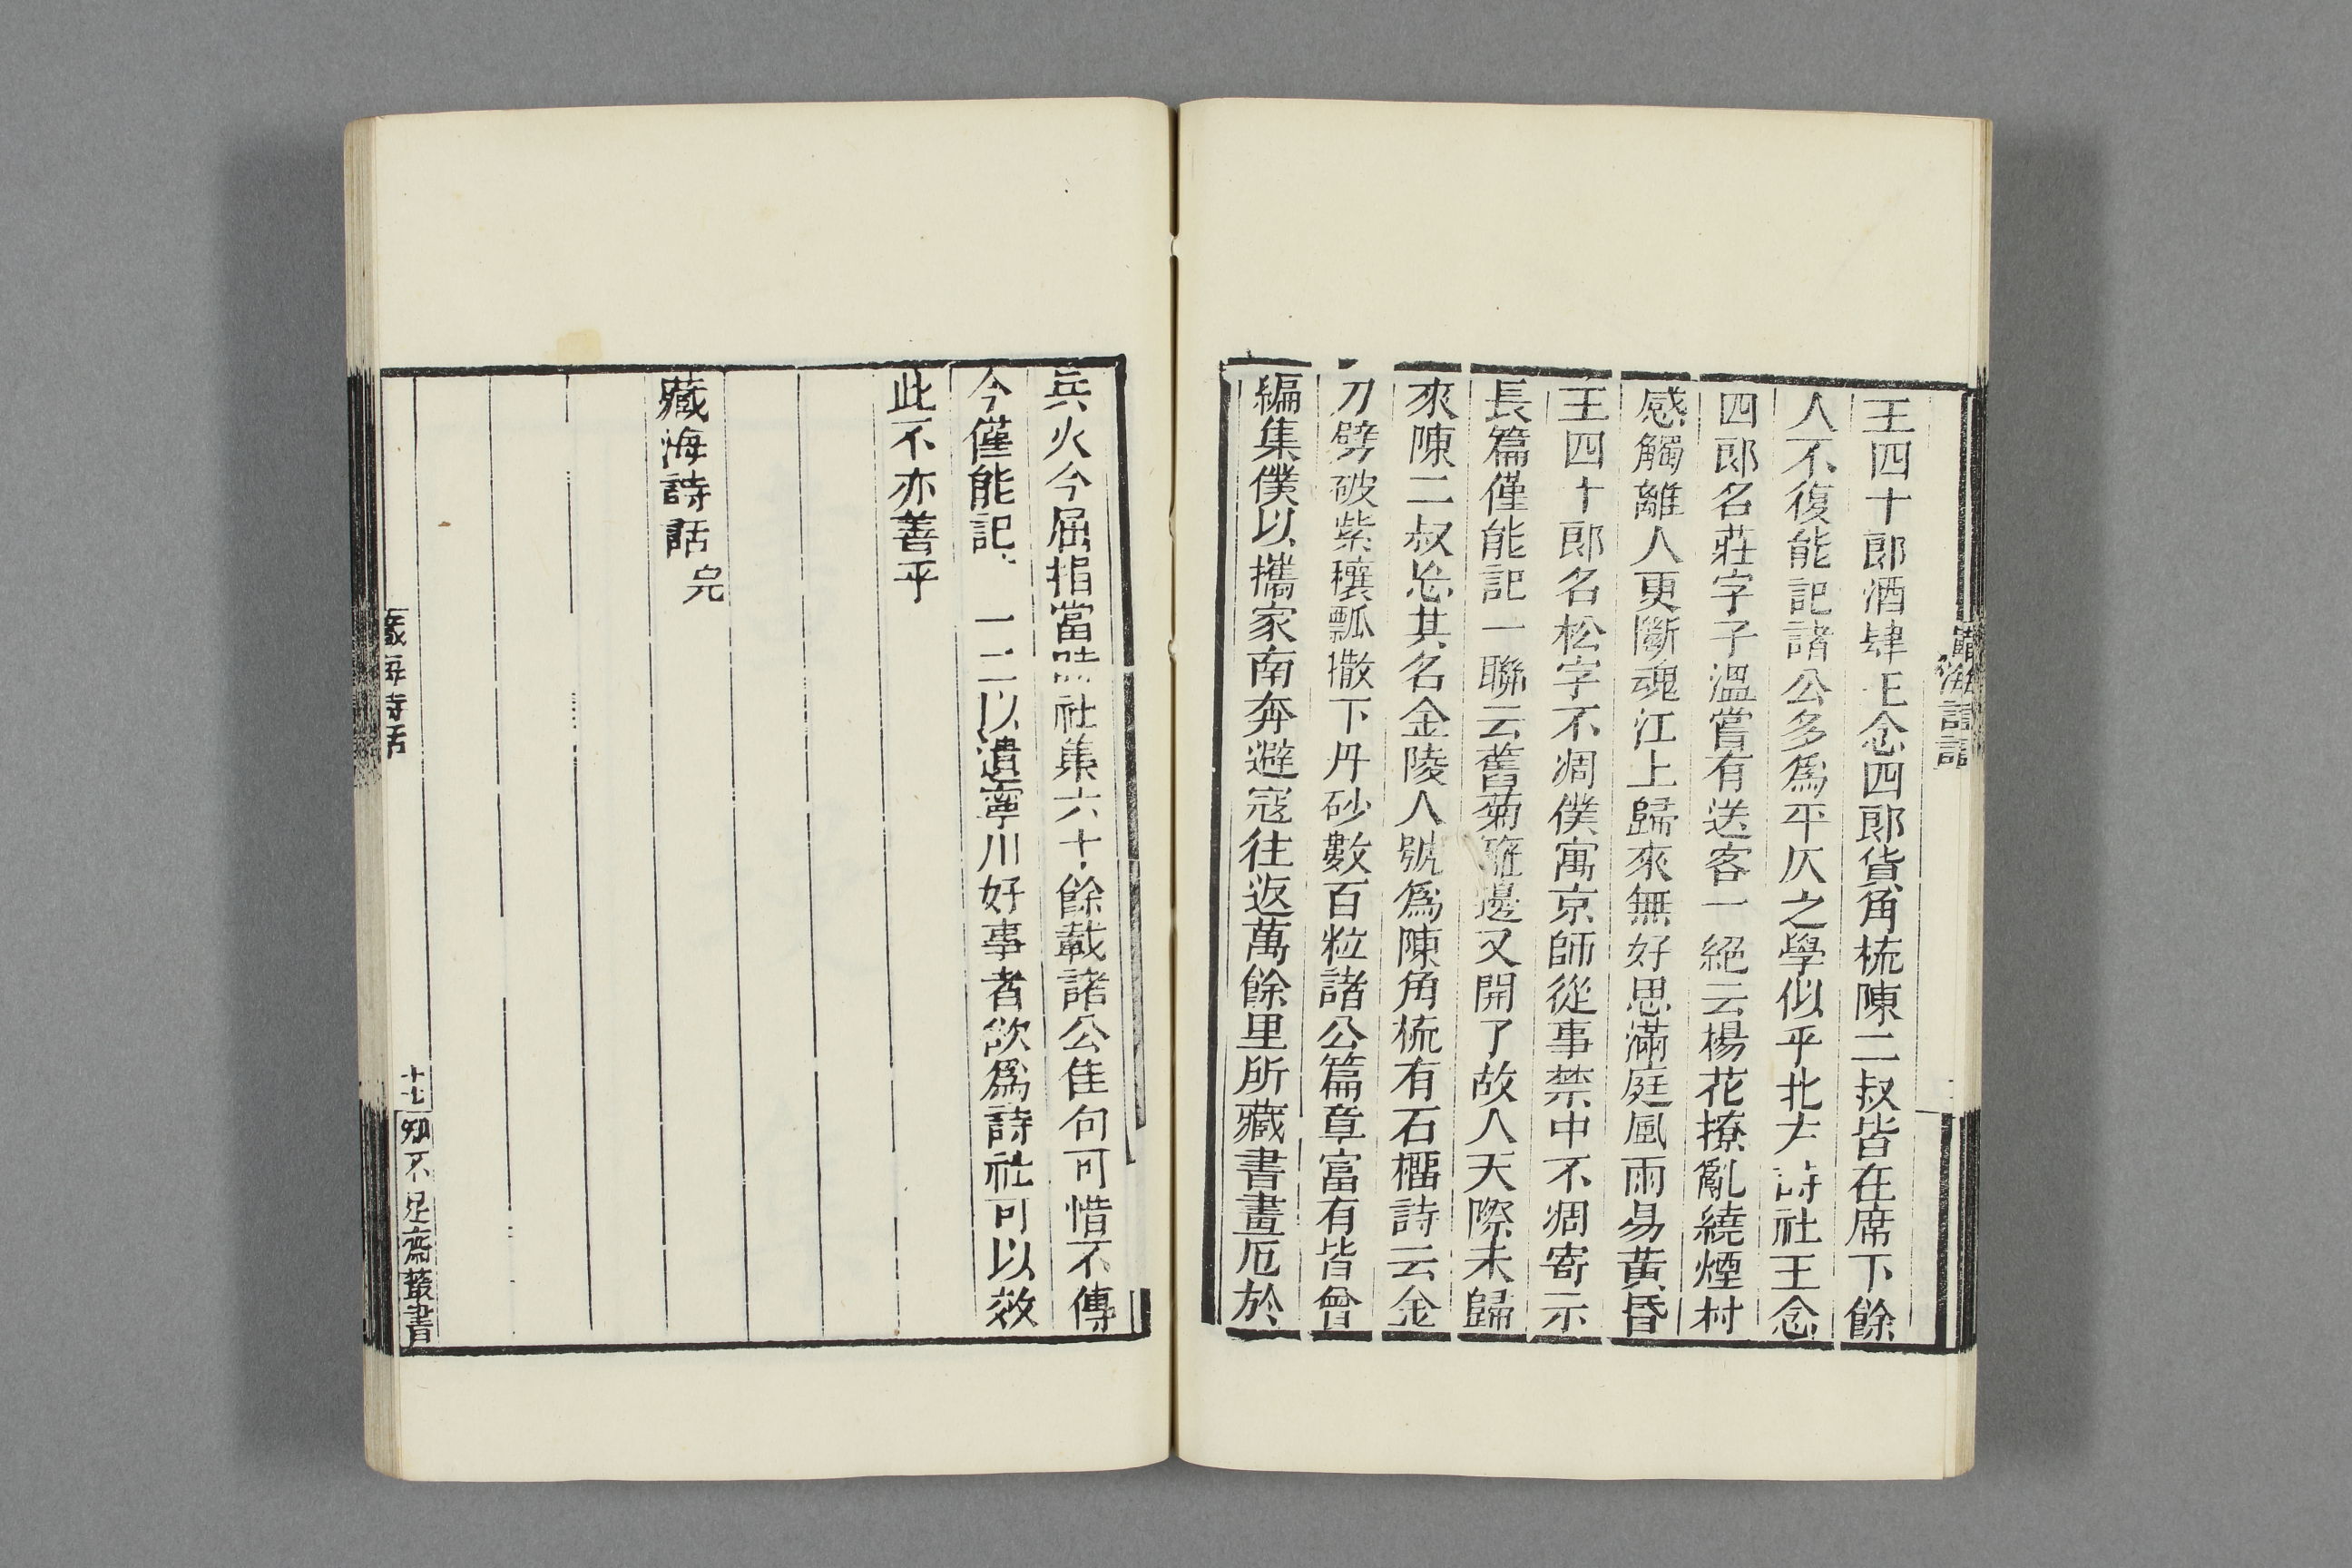 王四十郎酒肆王念四郎貨角梳陳二叔皆在席下餘
人不復能記諸公多爲平仄之學似乎北方詩社王念
四郎名莊字子溫嘗有送客一絕云楊花撩亂繞煙村
感觸離人更斷魂江上歸來無好思滿庭風雨易黃昏
王四十郎名松字不凋僕寓京師從事禁中不凋寄示
長篇僅能記一聯云舊菊籬邊又開了故人天際未歸
來陳二叔忘其名金陵人號爲陳角梳有石榴詩云金
刀劈破紫穰瓢撒下丹砂數百粒諸公篇章富有皆曾
編集僕以攜家南奔避寇往返萬餘里所藏書畫厄於
藏海詩話
兵火今屈指當時社集六十餘載諸公佳句可惜不傳
今僅能記一二以遺寧川好事者欲爲詩社可以效
此不亦善乎
藏海詩話完
藏海詩話
十七
知不足齋叢書